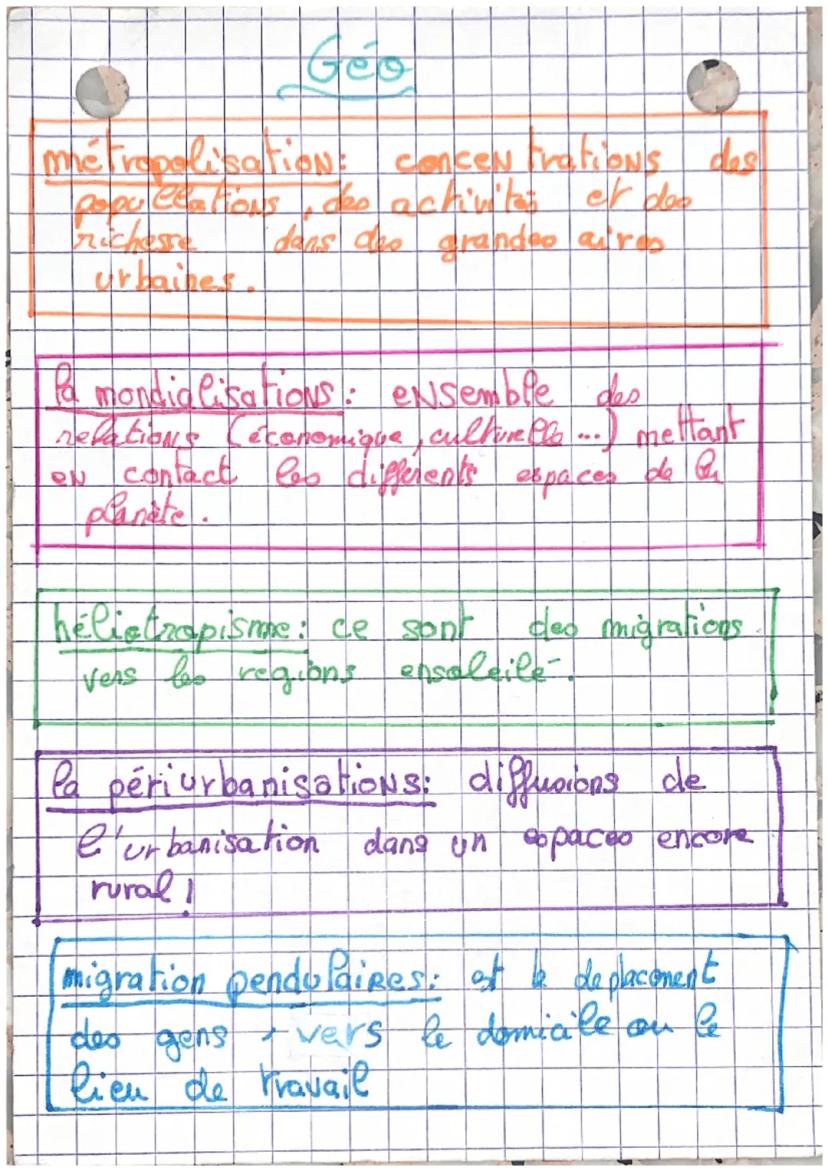 Géo
métropolisation: concentrations des
popullations, des activités et des
richesse dans des grandes aires
urbaines.
la mondialisations: ensemble des
relations (économique, culturelle...) mettant
en contact les différents espaces de la
planète.
héliotropisme: ce sont des migrations
vers les regions ensoleilé.
la périurbanisations: diffusions de
l'urbanisation dans un espaces encore
rural!
migration pendulaires: est le deplacement
des gens, vers le domicile ou le
lieu de travail